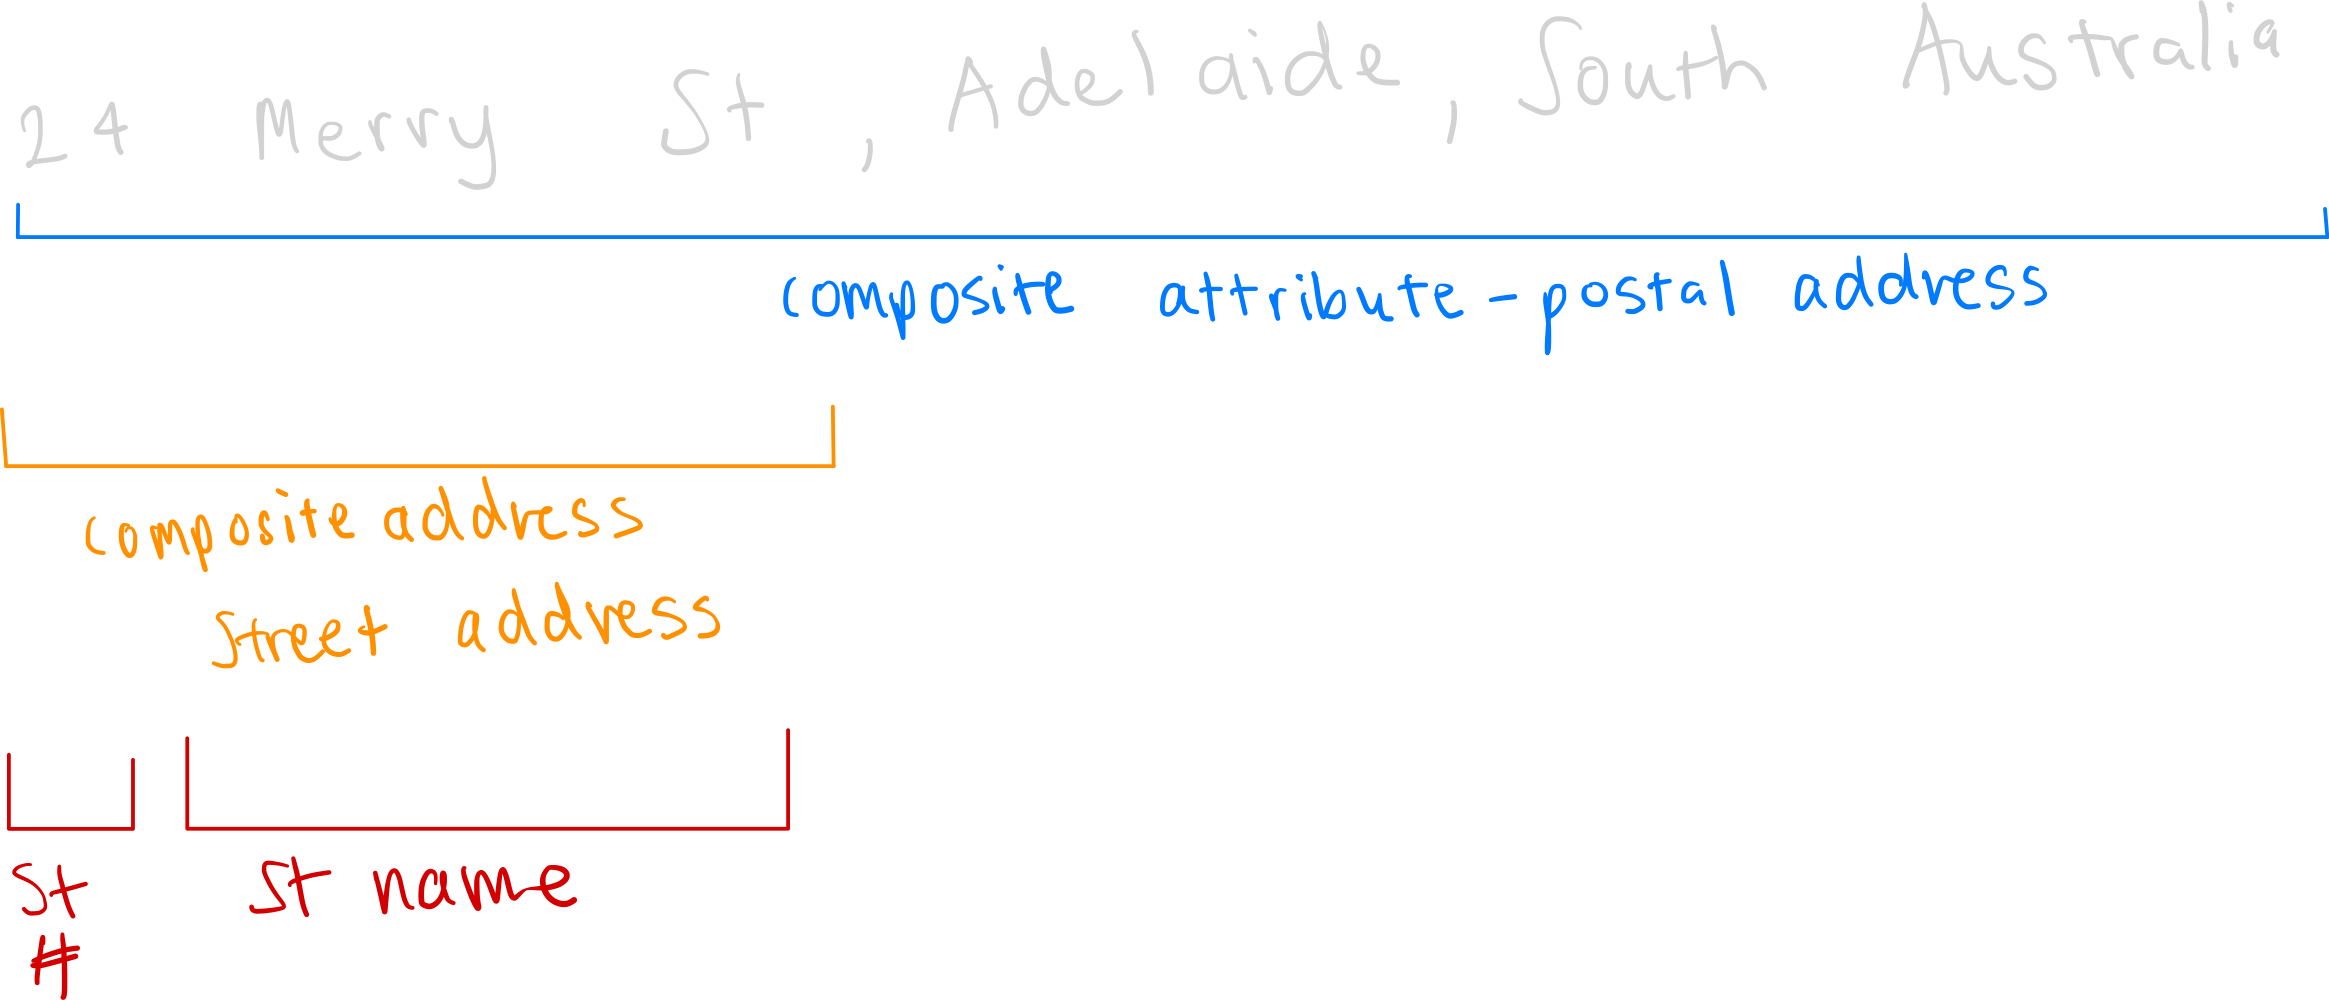 24 Merry St, Adelaide, South Australia
composite attribute - postal address
composite address
street address
St St name
#